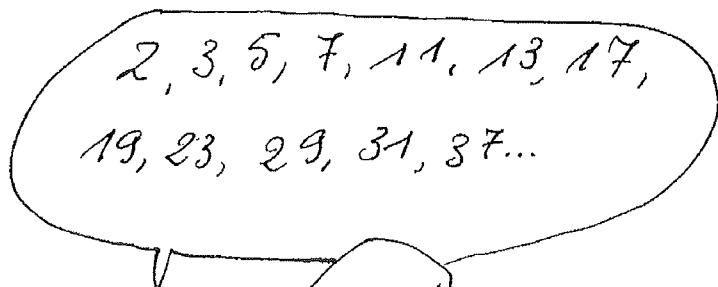 2, 3, 5, 7, 11, 13, 17,
19, 23, 29, 31, 37...